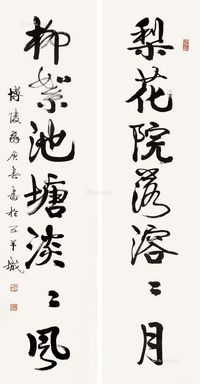 梨花院落溶〻月
柳絮池塘淡〻風
博陵蘇庚春書於五羊城